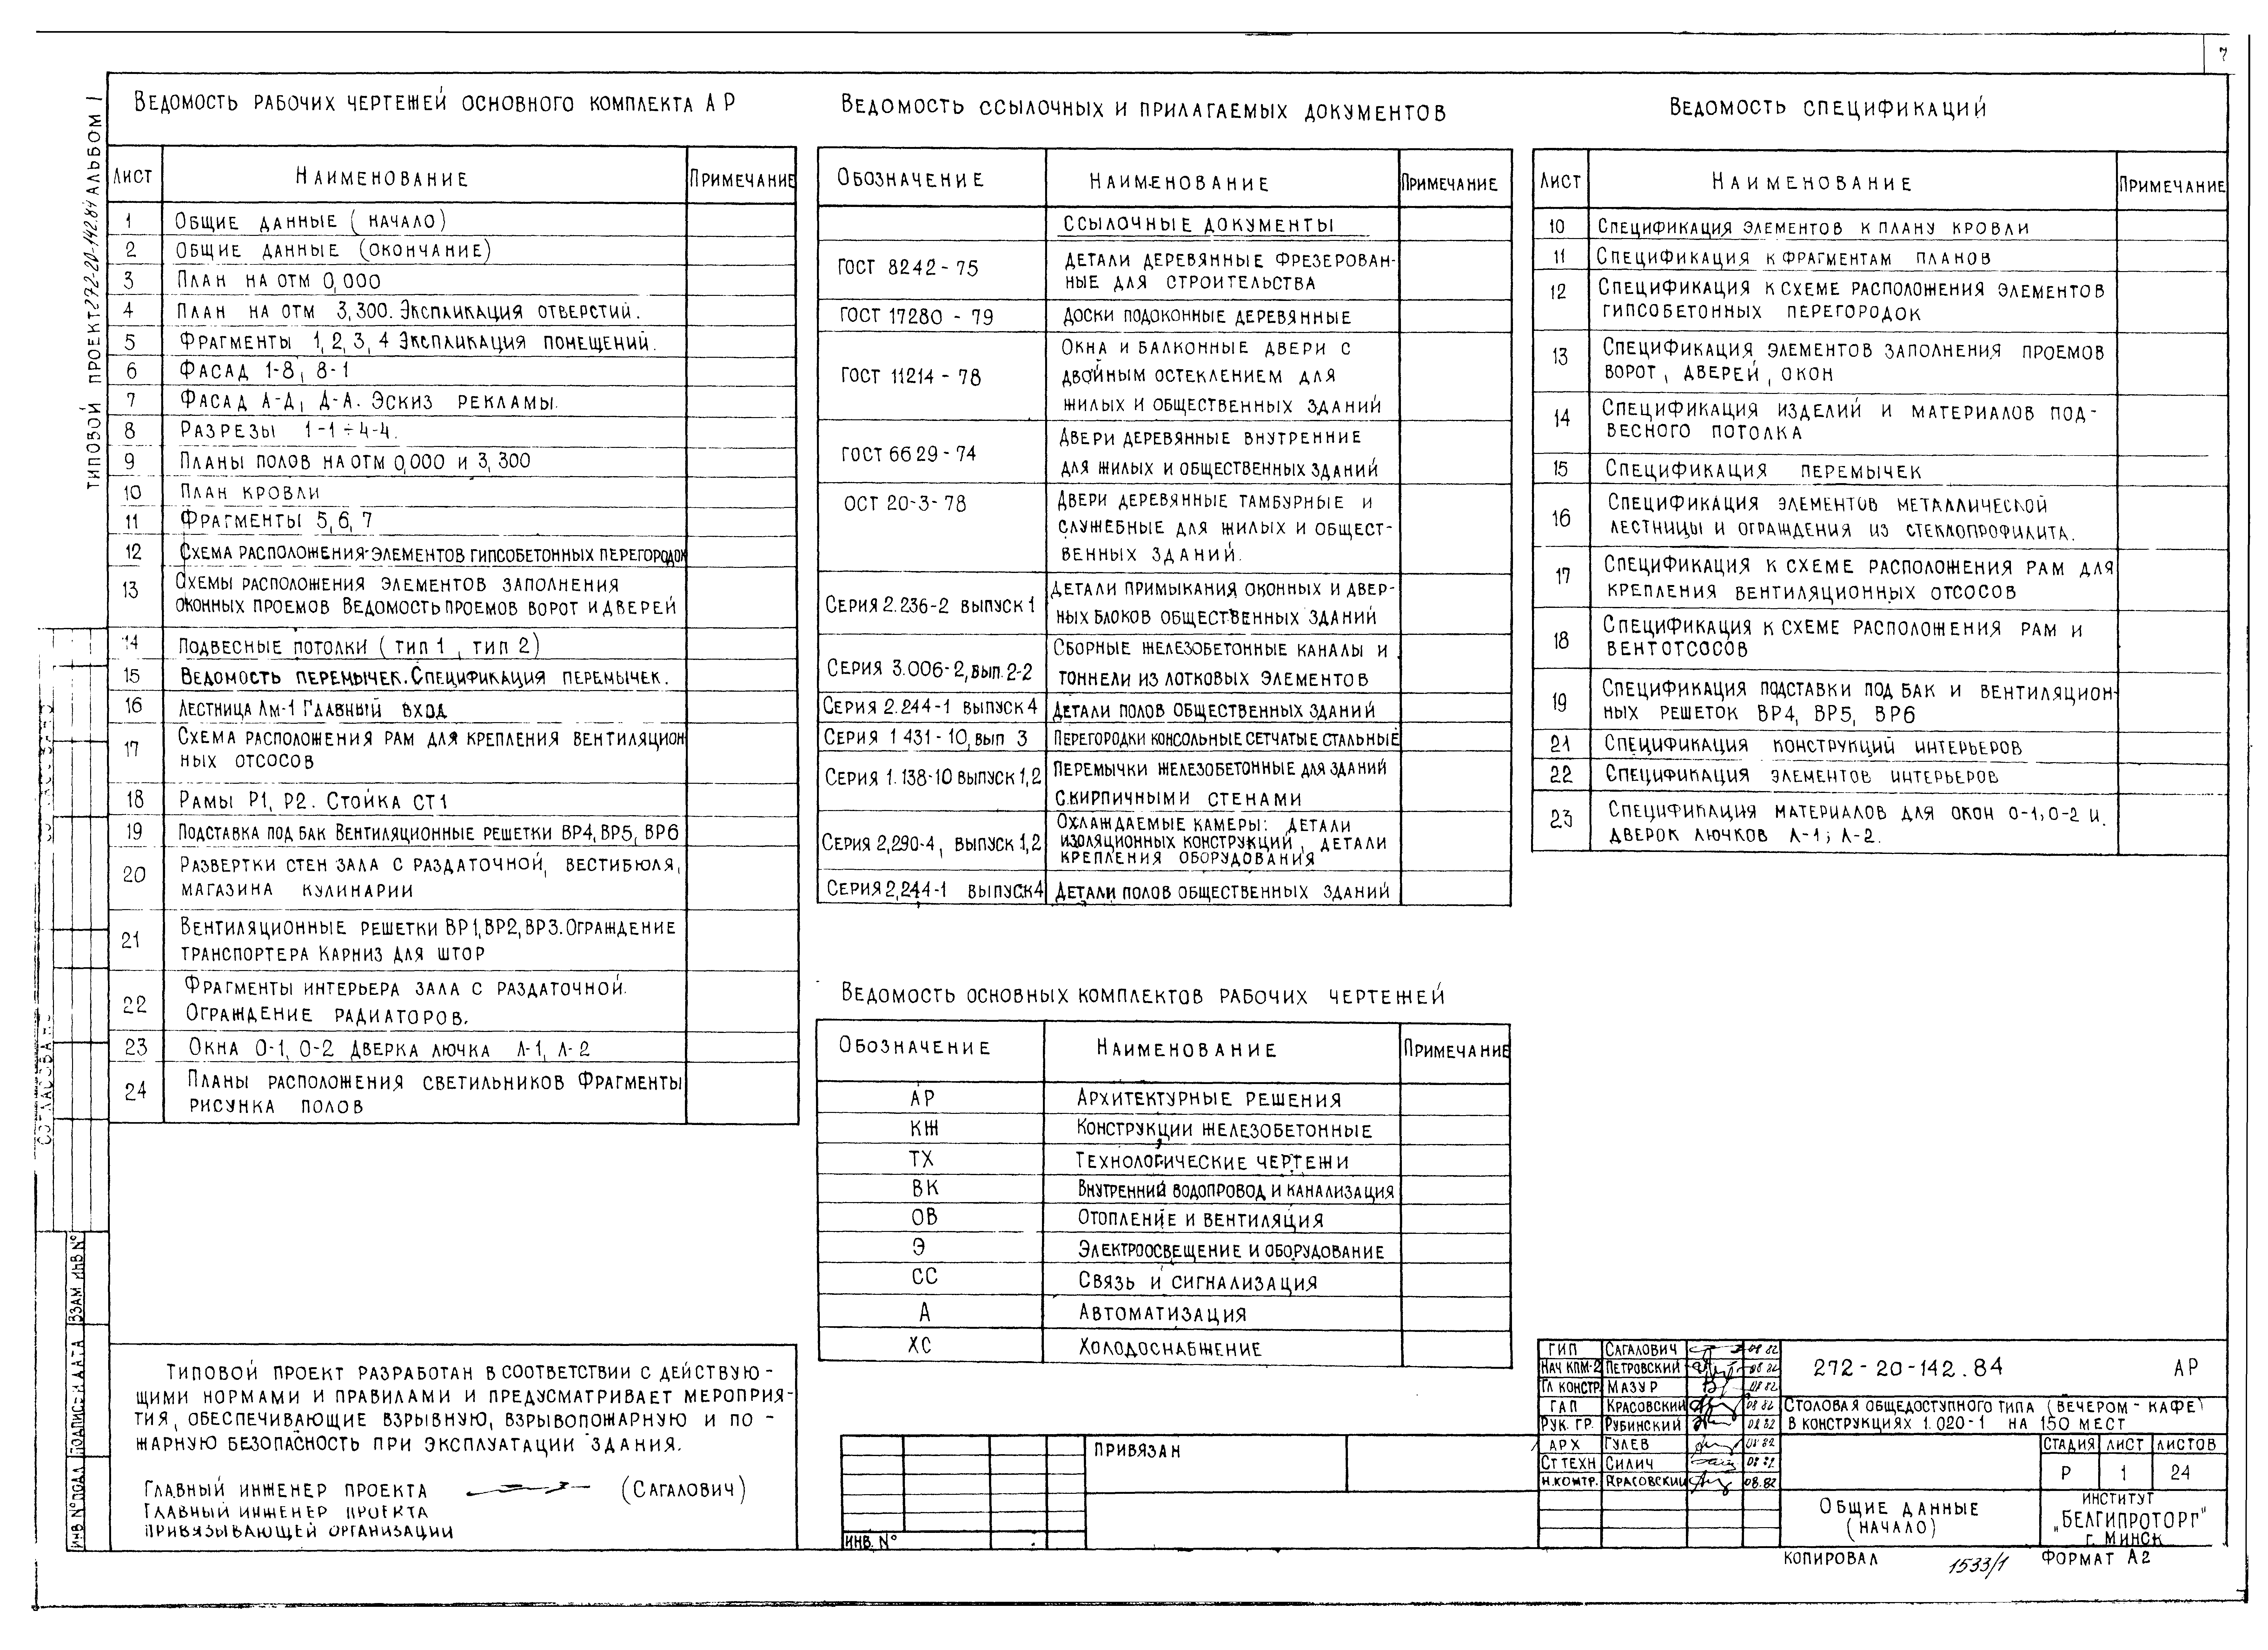 7
ТИПОВОЙ ПРОЕКТ 272-20-142.84 АЛЬБОМ 1
ВЕДОМОСТЬ РАБОЧИХ ЧЕРТЕЖЕЙ ОСНОВНОГО КОМПЛЕКТА АР
ЛИСТ НАИМЕНОВАНИЕ ПРИМЕЧАНИЕ
1 ОБЩИЕ ДАННЫЕ (НАЧАЛО)
2 ОБЩИЕ ДАННЫЕ (ОКОНЧАНИЕ)
3 ПЛАН НА ОТМ 0,000
4 ПЛАН НА ОТМ 3,300. ЭКСПЛИКАЦИЯ ОТВЕРСТИЙ.
5 ФРАГМЕНТЫ 1, 2, 3, 4 ЭКСПЛИКАЦИЯ ПОМЕЩЕНИЙ.
6 ФАСАД 1-8, 8-1
7 ФАСАД А-Д, Д-А. ЭСКИЗ РЕКЛАМЫ.
8 РАЗРЕЗЫ 1-1÷4-4.
9 ПЛАНЫ ПОЛОВ НА ОТМ 0,000 И 3,300
10 ПЛАН КРОВЛИ
11 ФРАГМЕНТЫ 5, 6, 7
12 СХЕМА РАСПОЛОЖЕНИЯ ЭЛЕМЕНТОВ ГИПСОБЕТОННЫХ ПЕРЕГОРОДОК
13 СХЕМЫ РАСПОЛОЖЕНИЯ ЭЛЕМЕНТОВ ЗАПОЛНЕНИЯ
ОКОННЫХ ПРОЕМОВ ВЕДОМОСТЬ ПРОЕМОВ ВОРОТ И ДВЕРЕЙ
14 ПОДВЕСНЫЕ ПОТОЛКИ (ТИП 1, ТИП 2)
15 ВЕДОМОСТЬ ПЕРЕМЫЧЕК. СПЕЦИФИКАЦИЯ ПЕРЕМЫЧЕК.
16 ЛЕСТНИЦА ЛМ-1 ГЛАВНЫЙ ВХОД
17 СХЕМА РАСПОЛОЖЕНИЯ РАМ ДЛЯ КРЕПЛЕНИЯ ВЕНТИЛЯЦИОН
НЫХ ОТСОСОВ
18 РАМЫ Р1, Р2. СТОЙКА СТ1
19 ПОДСТАВКА ПОД БАК ВЕНТИЛЯЦИОННЫЕ РЕШЕТКИ ВР4, ВР5, ВР6
20 РАЗВЕРТКИ СТЕН ЗАЛА С РАЗДАТОЧНОЙ, ВЕСТИБЮЛЯ,
МАГАЗИНА КУЛИНАРИИ
21 ВЕНТИЛЯЦИОННЫЕ РЕШЕТКИ ВР1, ВР2, ВР3. ОГРАЖДЕНИЕ
ТРАНСПОРТЕРА КАРНИЗ ДЛЯ ШТОР
22 ФРАГМЕНТЫ ИНТЕРЬЕРА ЗАЛА С РАЗДАТОЧНОЙ.
ОГРАЖДЕНИЕ РАДИАТОРОВ.
23 ОКНА О-1, О-2 ДВЕРКА ЛЮЧКА Л-1, Л-2
24 ПЛАНЫ РАСПОЛОЖЕНИЯ СВЕТИЛЬНИКОВ ФРАГМЕНТЫ
РИСУНКА ПОЛОВ
ТИПОВОЙ ПРОЕКТ РАЗРАБОТАН В СООТВЕТСТВИИ С ДЕЙСТВУЮ-
ЩИМИ НОРМАМИ И ПРАВИЛАМИ И ПРЕДУСМАТРИВАЕТ МЕРОПРИЯ-
ТИЯ, ОБЕСПЕЧИВАЮЩИЕ ВЗРЫВНУЮ, ВЗРЫВОПОЖАРНУЮ И ПО-
ЖАРНУЮ БЕЗОПАСНОСТЬ ПРИ ЭКСПЛУАТАЦИИ ЗДАНИЯ.
ГЛАВНЫЙ ИНЖЕНЕР ПРОЕКТА (САГАЛОВИЧ)
ГЛАВНЫЙ ИНЖЕНЕР ПРОЕКТА
ПРИВЯЗЫВАЮЩЕЙ ОРГАНИЗАЦИИ
ИНВ N° ПОДЛ ПОДПИСЬ И ДАТА ВЗАМ ИНВ N°
ВЕДОМОСТЬ ССЫЛОЧНЫХ И ПРИЛАГАЕМЫХ ДОКУМЕНТОВ
ОБОЗНАЧЕНИЕ НАИМЕНОВАНИЕ ПРИМЕЧАНИЕ
ССЫЛОЧНЫЕ ДОКУМЕНТЫ
ГОСТ 8242-75 ДЕТАЛИ ДЕРЕВЯННЫЕ ФРЕЗЕРОВАН-
НЫЕ ДЛЯ СТРОИТЕЛЬСТВА
ГОСТ 17280-79 ДОСКИ ПОДОКОННЫЕ ДЕРЕВЯННЫЕ
ГОСТ 11214-78 ОКНА И БАЛКОННЫЕ ДВЕРИ С
ДВОЙНЫМ ОСТЕКЛЕНИЕМ ДЛЯ
ЖИЛЫХ И ОБЩЕСТВЕННЫХ ЗДАНИЙ
ГОСТ 6629-74 ДВЕРИ ДЕРЕВЯННЫЕ ВНУТРЕННИЕ
ДЛЯ ЖИЛЫХ И ОБЩЕСТВЕННЫХ ЗДАНИЙ
ОСТ 20-3-78 ДВЕРИ ДЕРЕВЯННЫЕ ТАМБУРНЫЕ И
СЛУЖЕБНЫЕ ДЛЯ ЖИЛЫХ И ОБЩЕСТ-
ВЕННЫХ ЗДАНИЙ.
СЕРИЯ 2.236-2 ВЫПУСК 1 ДЕТАЛИ ПРИМЫКАНИЯ ОКОННЫХ И ДВЕР-
НЫХ БЛОКОВ ОБЩЕСТВЕННЫХ ЗДАНИЙ
СЕРИЯ 3.006-2, ВЫП. 2-2 СБОРНЫЕ ЖЕЛЕЗОБЕТОННЫЕ КАНАЛЫ И
ТОННЕЛИ ИЗ ЛОТКОВЫХ ЭЛЕМЕНТОВ
СЕРИЯ 2.244-1 ВЫПУСК 4 ДЕТАЛИ ПОЛОВ ОБЩЕСТВЕННЫХ ЗДАНИЙ
СЕРИЯ 1 431-10, ВЫП 3 ПЕРЕГОРОДКИ КОНСОЛЬНЫЕ СЕТЧАТЫЕ СТАЛЬНЫЕ
СЕРИЯ 1.138-10 ВЫПУСК 1,2 ПЕРЕМЫЧКИ ЖЕЛЕЗОБЕТОННЫЕ ДЛЯ ЗДАНИЙ
С КИРПИЧНЫМИ СТЕНАМИ
СЕРИЯ 2,290-4, ВЫПУСК 1,2 ОХЛАЖДАЕМЫЕ КАМЕРЫ: ДЕТАЛИ
ИЗОЛЯЦИОННЫХ КОНСТРУКЦИЙ, ДЕТАЛИ
КРЕПЛЕНИЯ ОБОРУДОВАНИЯ
СЕРИЯ 2,244-1 ВЫПУСК 4 ДЕТАЛИ ПОЛОВ ОБЩЕСТВЕННЫХ ЗДАНИЙ
ВЕДОМОСТЬ ОСНОВНЫХ КОМПЛЕКТОВ РАБОЧИХ ЧЕРТЕЖЕЙ
ОБОЗНАЧЕНИЕ НАИМЕНОВАНИЕ ПРИМЕЧАНИЕ
АР АРХИТЕКТУРНЫЕ РЕШЕНИЯ
КЖ КОНСТРУКЦИИ ЖЕЛЕЗОБЕТОННЫЕ
ТХ ТЕХНОЛОГИЧЕСКИЕ ЧЕРТЕЖИ
ВК ВНУТРЕННИЙ ВОДОПРОВОД И КАНАЛИЗАЦИЯ
ОВ ОТОПЛЕНИЕ И ВЕНТИЛЯЦИЯ
Э ЭЛЕКТРООСВЕЩЕНИЕ И ОБОРУДОВАНИЕ
СС СВЯЗЬ И СИГНАЛИЗАЦИЯ
А АВТОМАТИЗАЦИЯ
ХС ХОЛОДОСНАБЖЕНИЕ
ПРИВЯЗАН
ИНВ. N°
ВЕДОМОСТЬ СПЕЦИФИКАЦИЙ
ЛИСТ НАИМЕНОВАНИЕ ПРИМЕЧАНИЕ
10 СПЕЦИФИКАЦИЯ ЭЛЕМЕНТОВ К ПЛАНУ КРОВЛИ
11 СПЕЦИФИКАЦИЯ К ФРАГМЕНТАМ ПЛАНОВ
12 СПЕЦИФИКАЦИЯ К СХЕМЕ РАСПОЛОЖЕНИЯ ЭЛЕМЕНТОВ
ГИПСОБЕТОННЫХ ПЕРЕГОРОДОК
13 СПЕЦИФИКАЦИЯ ЭЛЕМЕНТОВ ЗАПОЛНЕНИЯ ПРОЕМОВ
ВОРОТ, ДВЕРЕЙ, ОКОН
14 СПЕЦИФИКАЦИЯ ИЗДЕЛИЙ И МАТЕРИАЛОВ ПОД-
ВЕСНОГО ПОТОЛКА
15 СПЕЦИФИКАЦИЯ ПЕРЕМЫЧЕК
16 СПЕЦИФИКАЦИЯ ЭЛЕМЕНТОВ МЕТАЛЛИЧЕСКОЙ
ЛЕСТНИЦЫ И ОГРАЖДЕНИЯ ИЗ СТЕКЛОПРОФИЛИТА.
17 СПЕЦИФИКАЦИЯ К СХЕМЕ РАСПОЛОЖЕНИЯ РАМ ДЛЯ
КРЕПЛЕНИЯ ВЕНТИЛЯЦИОННЫХ ОТСОСОВ
18 СПЕЦИФИКАЦИЯ К СХЕМЕ РАСПОЛОЖЕНИЯ РАМ И
ВЕНТОТСОСОВ
19 СПЕЦИФИКАЦИЯ ПОДСТАВКИ ПОД БАК И ВЕНТИЛЯЦИОН-
НЫХ РЕШЕТОК ВР4, ВР5, ВР6
21 СПЕЦИФИКАЦИЯ КОНСТРУКЦИЙ ИНТЕРЬЕРОВ
22 СПЕЦИФИКАЦИЯ ЭЛЕМЕНТОВ ИНТЕРЬЕРОВ
23 СПЕЦИФИКАЦИЯ МАТЕРИАЛОВ ДЛЯ ОКОН О-1, О-2 И
ДВЕРОК ЛЮЧКОВ Л-1; Л-2.
ГИП САГАЛОВИЧ 08 82
НАЧ КПМ-2 ПЕТРОВСКИЙ 08 82
ГЛ КОНСТР. МАЗУР 08 82
ГАП КРАСОВСКИЙ 08 82
РУК. ГР. РУБИНСКИЙ 08 82
АРХ ГУЛЕВ 08 82
СТ ТЕХН СИЛИЧ 08 82
Н.КОНТР. КРАСОВСКИЙ 08.82
272-20-142.84 АР
СТОЛОВАЯ ОБЩЕДОСТУПНОГО ТИПА (ВЕЧЕРОМ - КАФЕ)
В КОНСТРУКЦИЯХ 1.020-1 НА 150 МЕСТ
СТАДИЯ ЛИСТ ЛИСТОВ
Р 1 24
ОБЩИЕ ДАННЫЕ
(НАЧАЛО)
ИНСТИТУТ
„БЕЛГИПРОТОРГ"
г. МИНСК
КОПИРОВАЛ 1533/1 ФОРМАТ А2